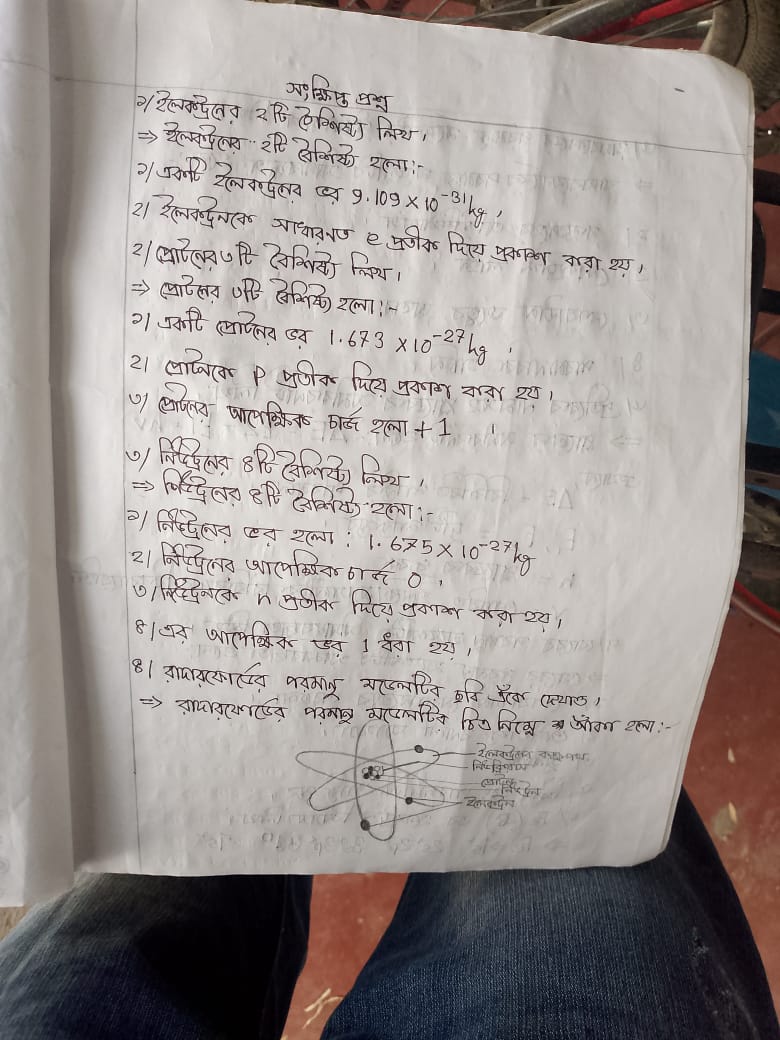 সংক্ষিপ্ত প্রশ্ন
১/ ইলেকট্রনের ২টি বৈশিষ্ট্য লিখ।
⇒ ইলেকট্রনের ২টি বৈশিষ্ট্য হলো:-
১/ একটি ইলেকট্রনের ভর 9.109 × 10⁻³¹ kg,
২। ইলেকট্রনকে সাধারনত e প্রতীক দিয়ে প্রকাশ করা হয়।
২/ প্রোটনের ৩টি বৈশিষ্ট্য লিখ।
⇒ প্রোটনের ৩টি বৈশিষ্ট্য হলো:-
১/ একটি প্রোটনের ভর 1.673 × 10⁻²⁷ kg,
২। প্রোটনকে P প্রতীক দিয়ে প্রকাশ করা হয়।
৩/ প্রোটনের আপেক্ষিক চার্জ হলো +1।
৩/ নিউট্রনের ৪টি বৈশিষ্ট্য লিখ।
⇒ নিউট্রনের ৪টি বৈশিষ্ট্য হলো:-
১/ নিউট্রনের ভর হলো: 1.675 × 10⁻²⁷ kg
২। নিউট্রনের আপেক্ষিক চার্জ 0,
৩/ নিউট্রনকে n প্রতীক দিয়ে প্রকাশ করা হয়।
৪/ এর আপেক্ষিক ভর 1 ধরা হয়।
৪। রাদারফোর্ডের পরমানু মডেলটির ছবি এঁকে দেখাও।
⇒ রাদারফোর্ডের পরমানু মডেলটির চিত্র নিম্নে আঁকা হলো:-
ইলেকট্রনের কক্ষপথ
নিউক্লিয়াস
প্রোটন
নিউট্রন
ইলেকট্রন